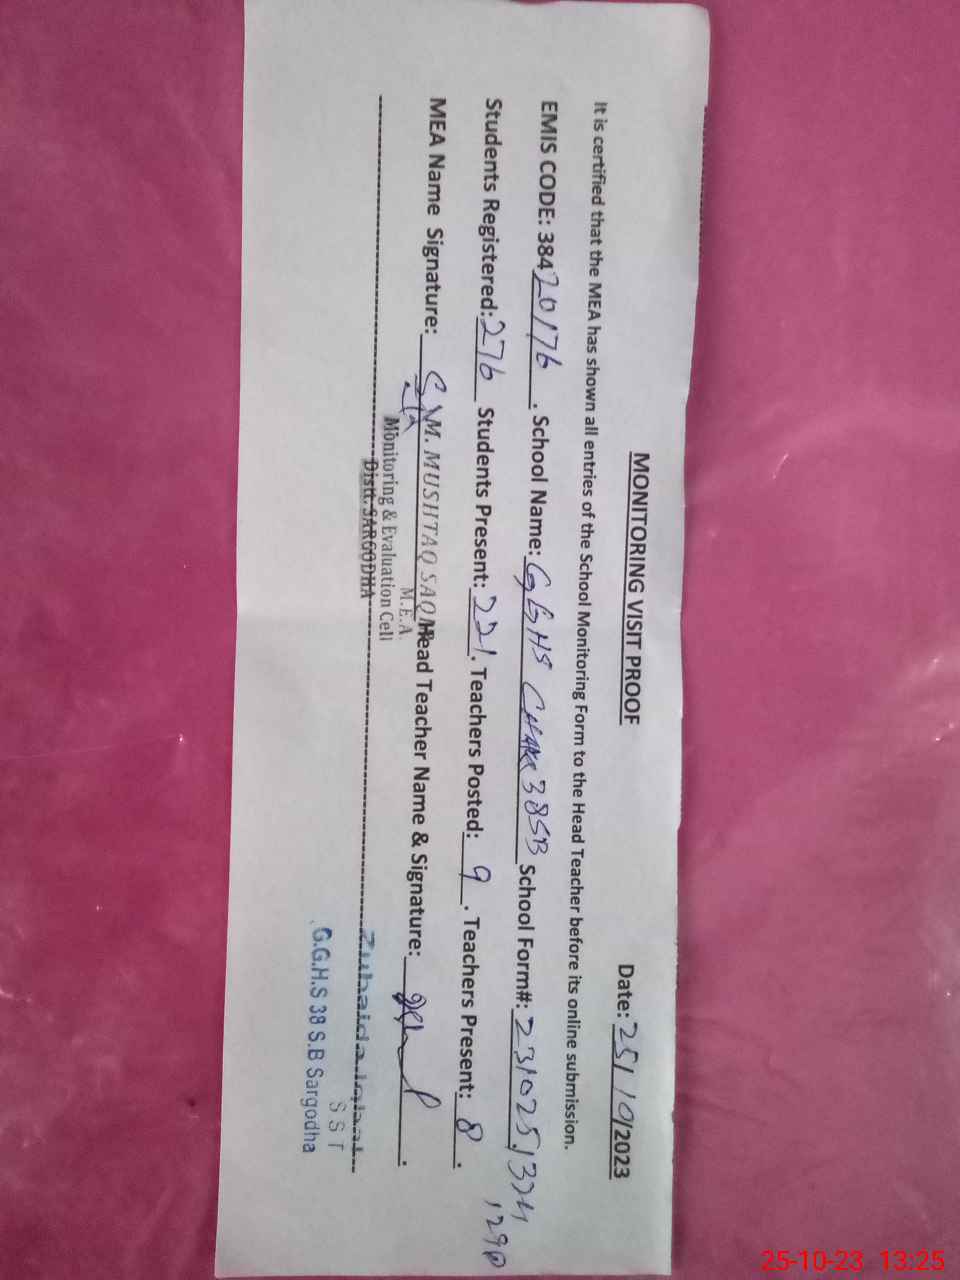 MONITORING VISIT PROOF
Date: 25/10/2023
It is certified that the MEA has shown all entries of the School Monitoring Form to the Head Teacher before its online submission.
EMIS CODE: 38420176. School Name: GGHS CHAK 38SB School Form#: 231025.1324
1290
Students Registered: 276 Students Present: 221. Teachers Posted: 9. Teachers Present: 8.
MEA Name Signature: M. MUSHTAQ SAQI Head Teacher Name & Signature:
M.E.A
Monitoring & Evaluation Cell
Distt. SARGODHA
Zubaida Iqbal
SST
G.G.H.S 38 S.B Sargodha
25-10-23 13:25